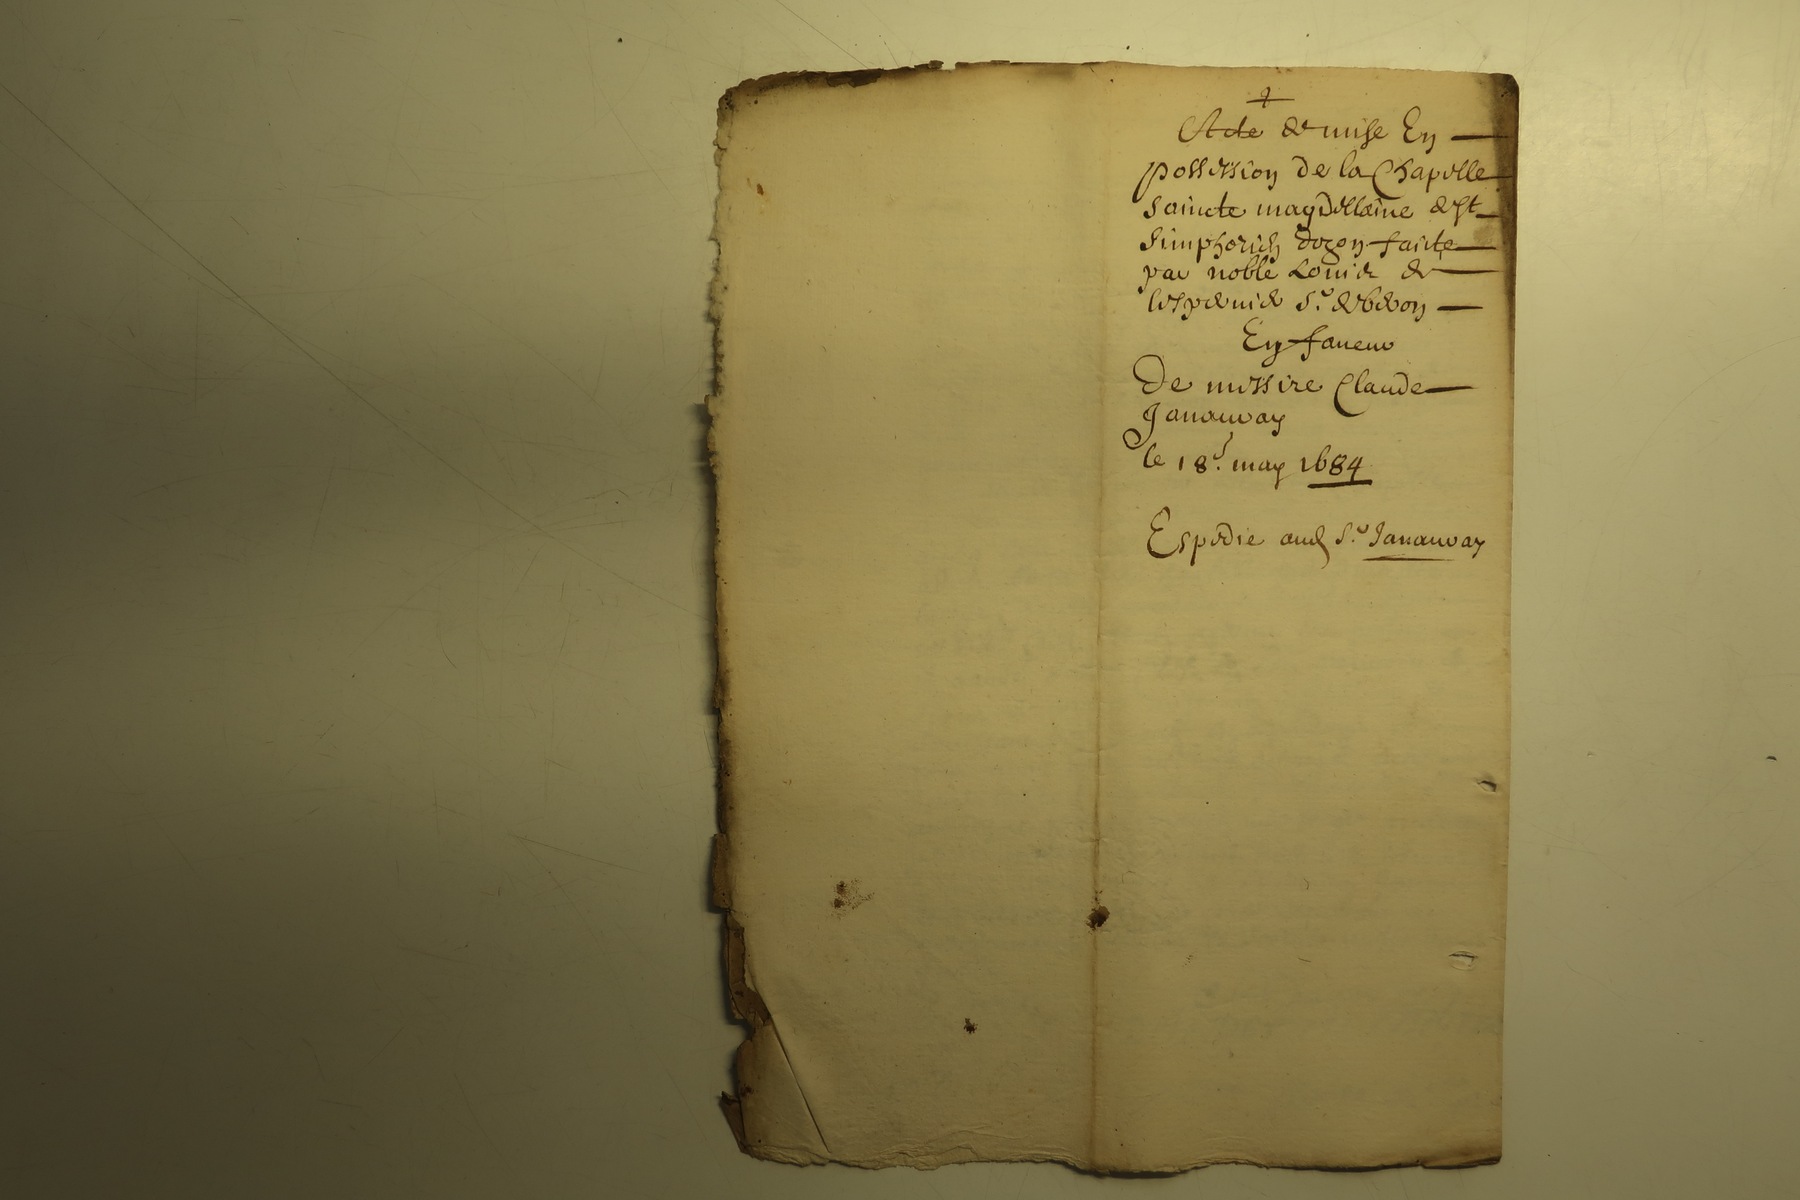 Acte de mise En
possession de la Chapelle
saincte magdellaine de St
Simphorien dozon faicte
par noble Louis de
lespinasse Sr. de beon
En faueur
De messire Claude
Janauray
le 18e. may 1684
Expedie aud Sr. Janauray